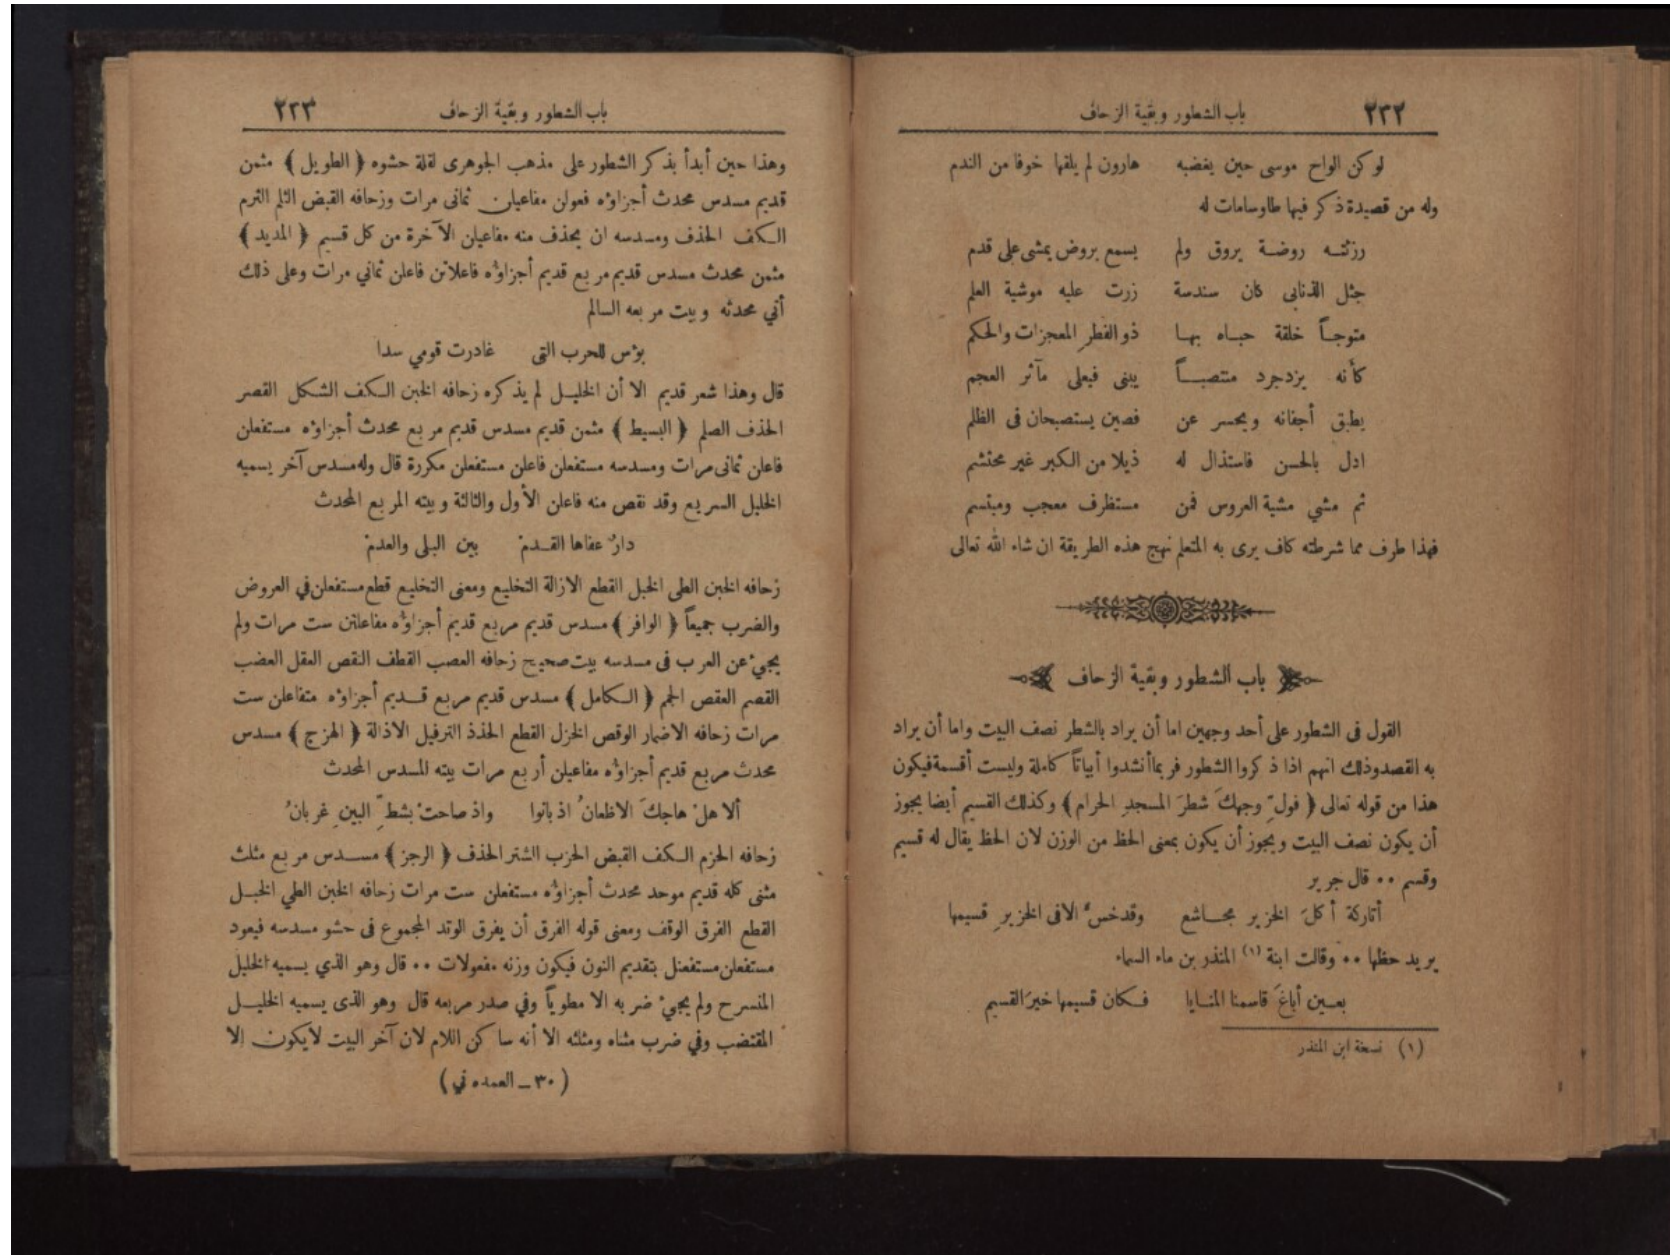 ٢٣٢
باب الشطور وبقية الزحاف
لو كن الواح موسى حين يغضبه هارون لم يلقها خوفا من الندم
وله من قصيدة ذكر فيها طاوسامات له
رزئتـه روضـة يروق ولم يسمع بروض يمشى على قدم
جثل الذنابى كان سندسة زرت عليه موشية العلم
متوجـاً خلقة حبـاه بهـا ذو الفطرِ المعجزات والحكم
كأنه يزدجرد منتصبـاً يبنى فيعلى مآثر العجم
يطبق أجفانه ويحسر عن فصين يستصبحان فى الظلم
ادل بالحسن فاستذال له ذيلا من الكبر غير محتشم
ثم مشي مشية العروس فمن مستظرف معجب ومبتسم
فهذا طرف مما شرطته كاف يرى به المتعلم نهج هذه الطريقة ان شاء الله تعالى
باب الشطور وبقية الزحاف
القول فى الشطور على أحد وجهين اما أن يراد بالشطر نصف البيت واما أن يراد
به القصد وذلك انهم اذا ذكروا الشطور فربما أنشدوا أبياتاً كاملة وليست أقسمة فيكون
هذا من قوله تعالى ﴿ فولِّ وجهكَ شطرَ المسجدِ الحرام ﴾ وكذلك القسيم أيضا يجوز
أن يكون نصف البيت ويجوز أن يكون بمعنى الحظ من الوزن لان الحظ يقال له قسيم
وقسم ٠٠ قال جرير
أتاركة أكلَ الخزير مجـاشع وقد خسَّ الا فى الخزيرِ قسيمها
يريد حظها ٠٠ وقالت ابنة (١) المنذر بن ماء السماء
بعـين أباغَ قاسمنا المنـايا فـكان قسيمها خيرَ القسيم
(١) نسخة ابن المنذر
باب الشطور وبقية الزحاف
٢٣٣
وهذا حين أبدأ بذكر الشطور على مذهب الجوهرى لقلة حشوه ﴿ الطويل ﴾ مثمن
قديم مسدس محدث أجزاؤه فعولن مفاعيلن ثمانى مرات وزحافه القبض الثلم الثرم
الـكف الحذف ومسدسه ان يحذف منه مفاعيلن الآخرة من كل قسيم ﴿ المديد ﴾
مثمن محدث مسدس قديم مربع قديم أجزاؤه فاعلاتن فاعلن ثماني مرات وعلى ذلك
أتي محدثه وبيت مربعه السالم
بؤس للحرب التى غادرت قومي سدا
قال وهذا شعر قديم الا أن الخليـل لم يذكره زحافه الخبن الـكف الشـكل القصر
الحذف الصلم ﴿ البسيط ﴾ مثمن قديم مسدس قديم مربع محدث أجزاؤه مستفعلن
فاعلن ثمانى مرات ومسدسه مستفعلن فاعلن مستفعلن مكررة قال وله مسدس آخر يسميه
الخليل السريع وقد نقص منه فاعلن الأول والثالثة وبيته المربع المحدث
دارٌ عفاها القـدمْ بين البلى والعدمْ
زحافه الخبن الطى الخبل القطع الازالة التخليع ومعنى التخليع قطع مستفعلن في العروض
والضرب جميعاً ﴿ الوافر ﴾ مسدس قديم مربع قديم أجزاؤه مفاعلتن ست مرات ولم
يجيء عن العرب فى مسدسه بيت صحيح زحافه العصب القطف النقص العقل العضب
القصم العقص الجم ﴿ الـكامل ﴾ مسدس قديم مربع قـديم أجزاؤه متفاعلن ست
مرات زحافه الاضمار الوقص الخزل القطع الحذذ الترفيل الاذالة ﴿ الهزج ﴾ مسدس
محدث مربع قديم أجزاؤه مفاعيلن أربع مرات بيته المسدس المحدث
ألا هلْ هاجكَ الاظعانُ اذ بانوا واذ صاحتْ بشطِّ البينِ غربانُ
زحافه الخرم الـكف القبض الخرب الشتر الحذف ﴿ الرجز ﴾ مسـدس مربع مثلث
مثنى كله قديم موحد محدث أجزاؤه مستفعلن ست مرات زحافه الخبن الطي الخبـل
القطع الفرق الوقف ومعنى قوله الفرق أن يفرق الوتد المجموع فى حشو مسدسه فيعود
مستفعلن مستفعنل بتقديم النون فيكون وزنه مفعولات ٠٠ قال وهو الذي يسميه الخليل
المنسرح ولم يجيء ضربه الا مطوياً وفي صدر مربعه قال وهو الذى يسميه الخليـل
المقتضب وفي ضرب مثناه ومثلثه الا أنه ساكن اللام لان آخر البيت لا يكون إلا
( ٣٠ ـ العمده ني )